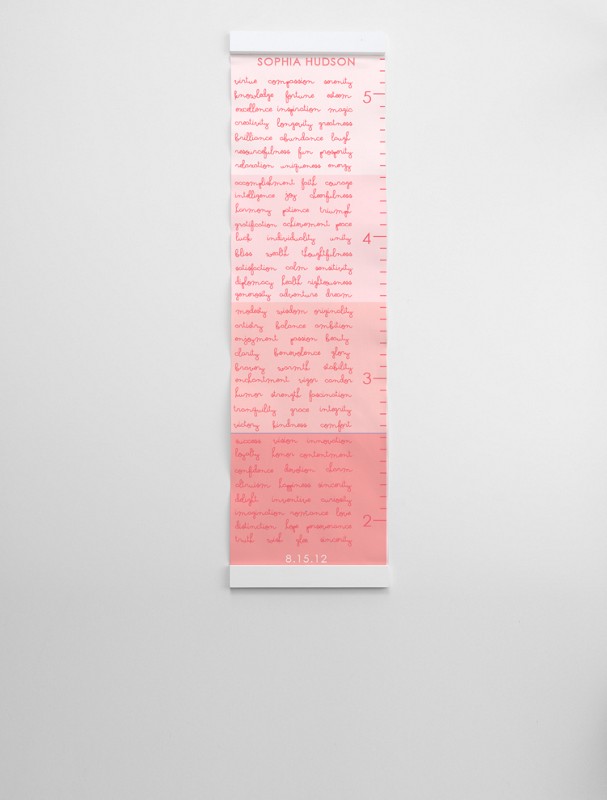 SOPHIA HUDSON
virtue compassion serenity
knowledge fortune esteem
5
excellence inspiration magic
creativity longevity greatness
brilliance abundance laugh
resourcefulness fun prosperity
relaxation uniqueness energy
accomplishment faith courage
intelligence joy cheerfulness
harmony patience triumph
gratification achievement peace
luck individuality unity
4
bliss wealth thoughtfulness
satisfaction calm sensitivity
diplomacy health righteousness
generosity adventure dream
modesty wisdom originality
artistry balance ambition
enjoyment passion beauty
clarity benevolence glory
bravery warmth stability
enchantment vigor candor
3
humor strength fascination
tranquility grace integrity
victory kindness comfort
success vision innovation
loyalty honor contentment
confidence devotion charm
altruism happiness sincerity
delight inventive curiosity
imagination romance love
distinction hope perseverance
2
truth wish glee sincerity
8.15.12